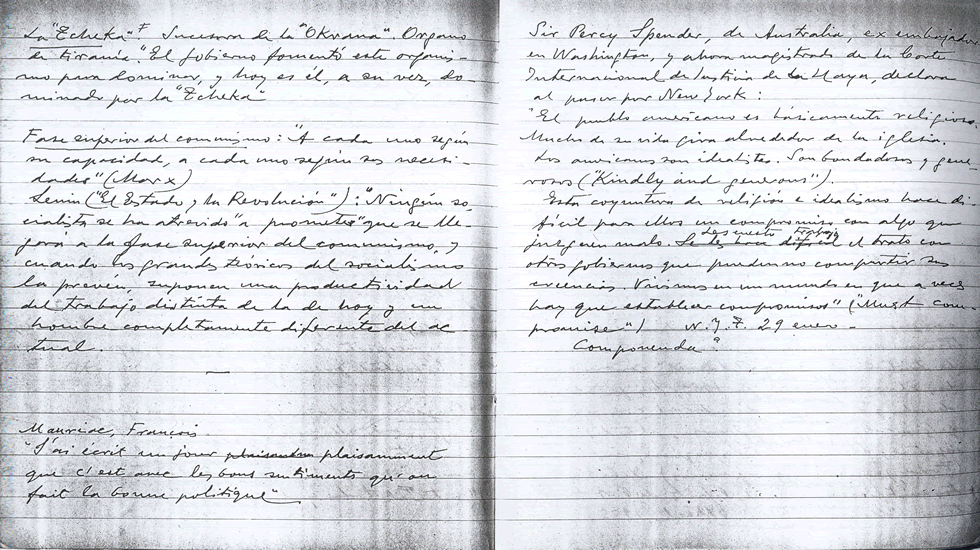 La "Tcheka". Sucesora de la "Okrana". Organo
de tiranía. "El gobierno fomentó este organis-
mo para dominar, y hoy es él, a su vez, do
minado por la "Tcheka"
Fase superior del comunismo: "A cada uno según
su capacidad, a cada uno según sus necesi-
dades" (Marx)
Lenin ("El Estado y la Revolución"): "Ningún so,
cialista se ha atrevido "a prometer" que se lle
gará a la fase superior del comunismo, y
cuando los grandes teóricos del socialismo
la prevén, suponen una productividad
del trabajo distinta de la de hoy y un
hombre completamente diferente del ac
tual.
Mauriac, François
"J'ai écrit un jour plaisamment
que c'est avec les bons sentiments qu'on
fait la bonne politique"
Sir Percy Spender, de Australia, ex embajador
en Washington, y ahora magistrado de la Corte
Internacional de Justicia de La Haya, declara
al pasar por New York:
"El pueblo americano es básicamente religioso.
Mucho de su vida gira alrededor de la iglesia.
Los americanos son idealistas. Son bondadosos y gene
rosos ("Kindly and generous").
Esta coyuntura de religión e idealismo hace di
fícil para ellos un compromiso con algo que
juzguen malo. Se les hace difícil el trato con
trabajo
otros gobiernos que puedan no compartir sus
creencias. Vivimos en un mundo en que a veces
hay que establecer compromisos" ("Must com
promise") N.Y.T. 29 enero -
Componenda?